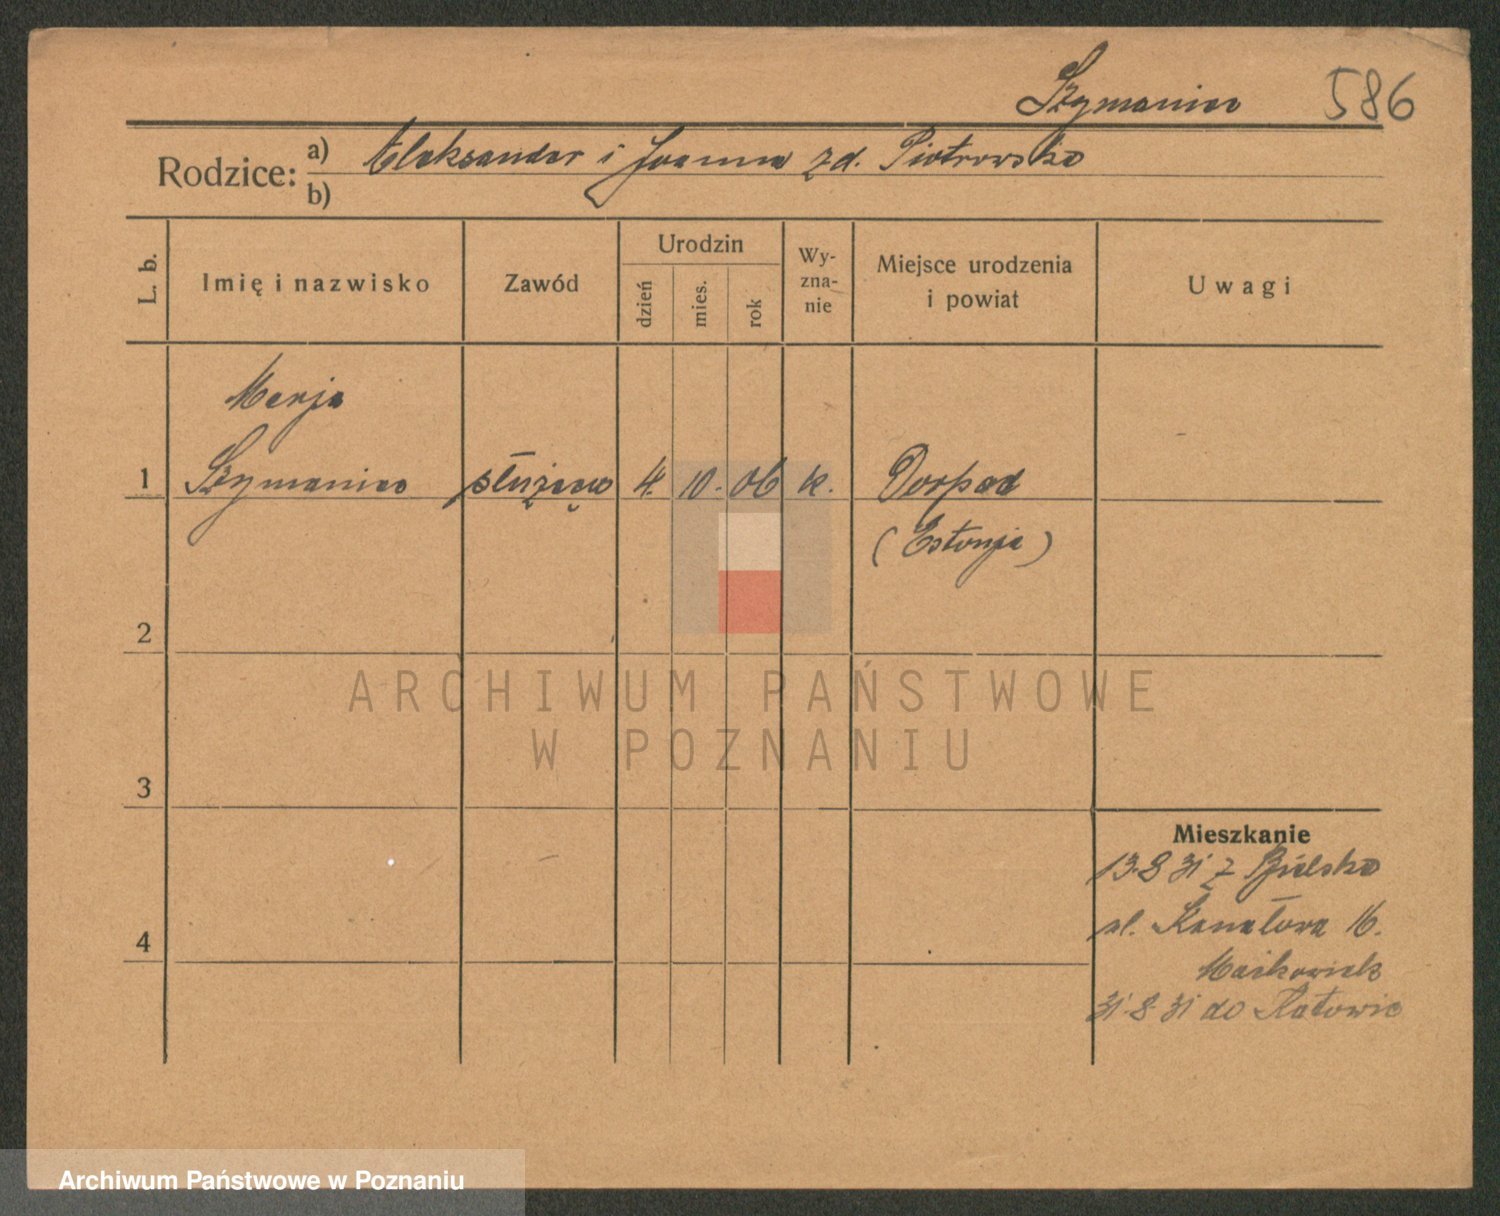 Szymaniec 586
Rodzice: a) Aleksander i Joanna zd. Piotrowska
b)
L. b.
Imię i nazwisko
Zawód
Urodzin
dzień
mies.
rok
Wy-
zna-
nie
Miejsce urodzenia
i powiat
Uwagi
Marja
1 Szymaniec służąca 4. 10. 06 k. Dorpad
(Estonja)
2
3
4
Mieszkanie
13.8 31 z Bielska
ul. Kanałowa 16.
Maćkowiak
31.8 31 do Katowic
ARCHIWUM PAŃSTWOWE
W POZNANIU
Archiwum Państwowe w Poznaniu